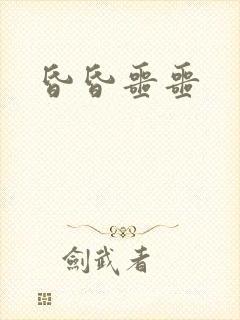 昏昏噩噩
劍武者